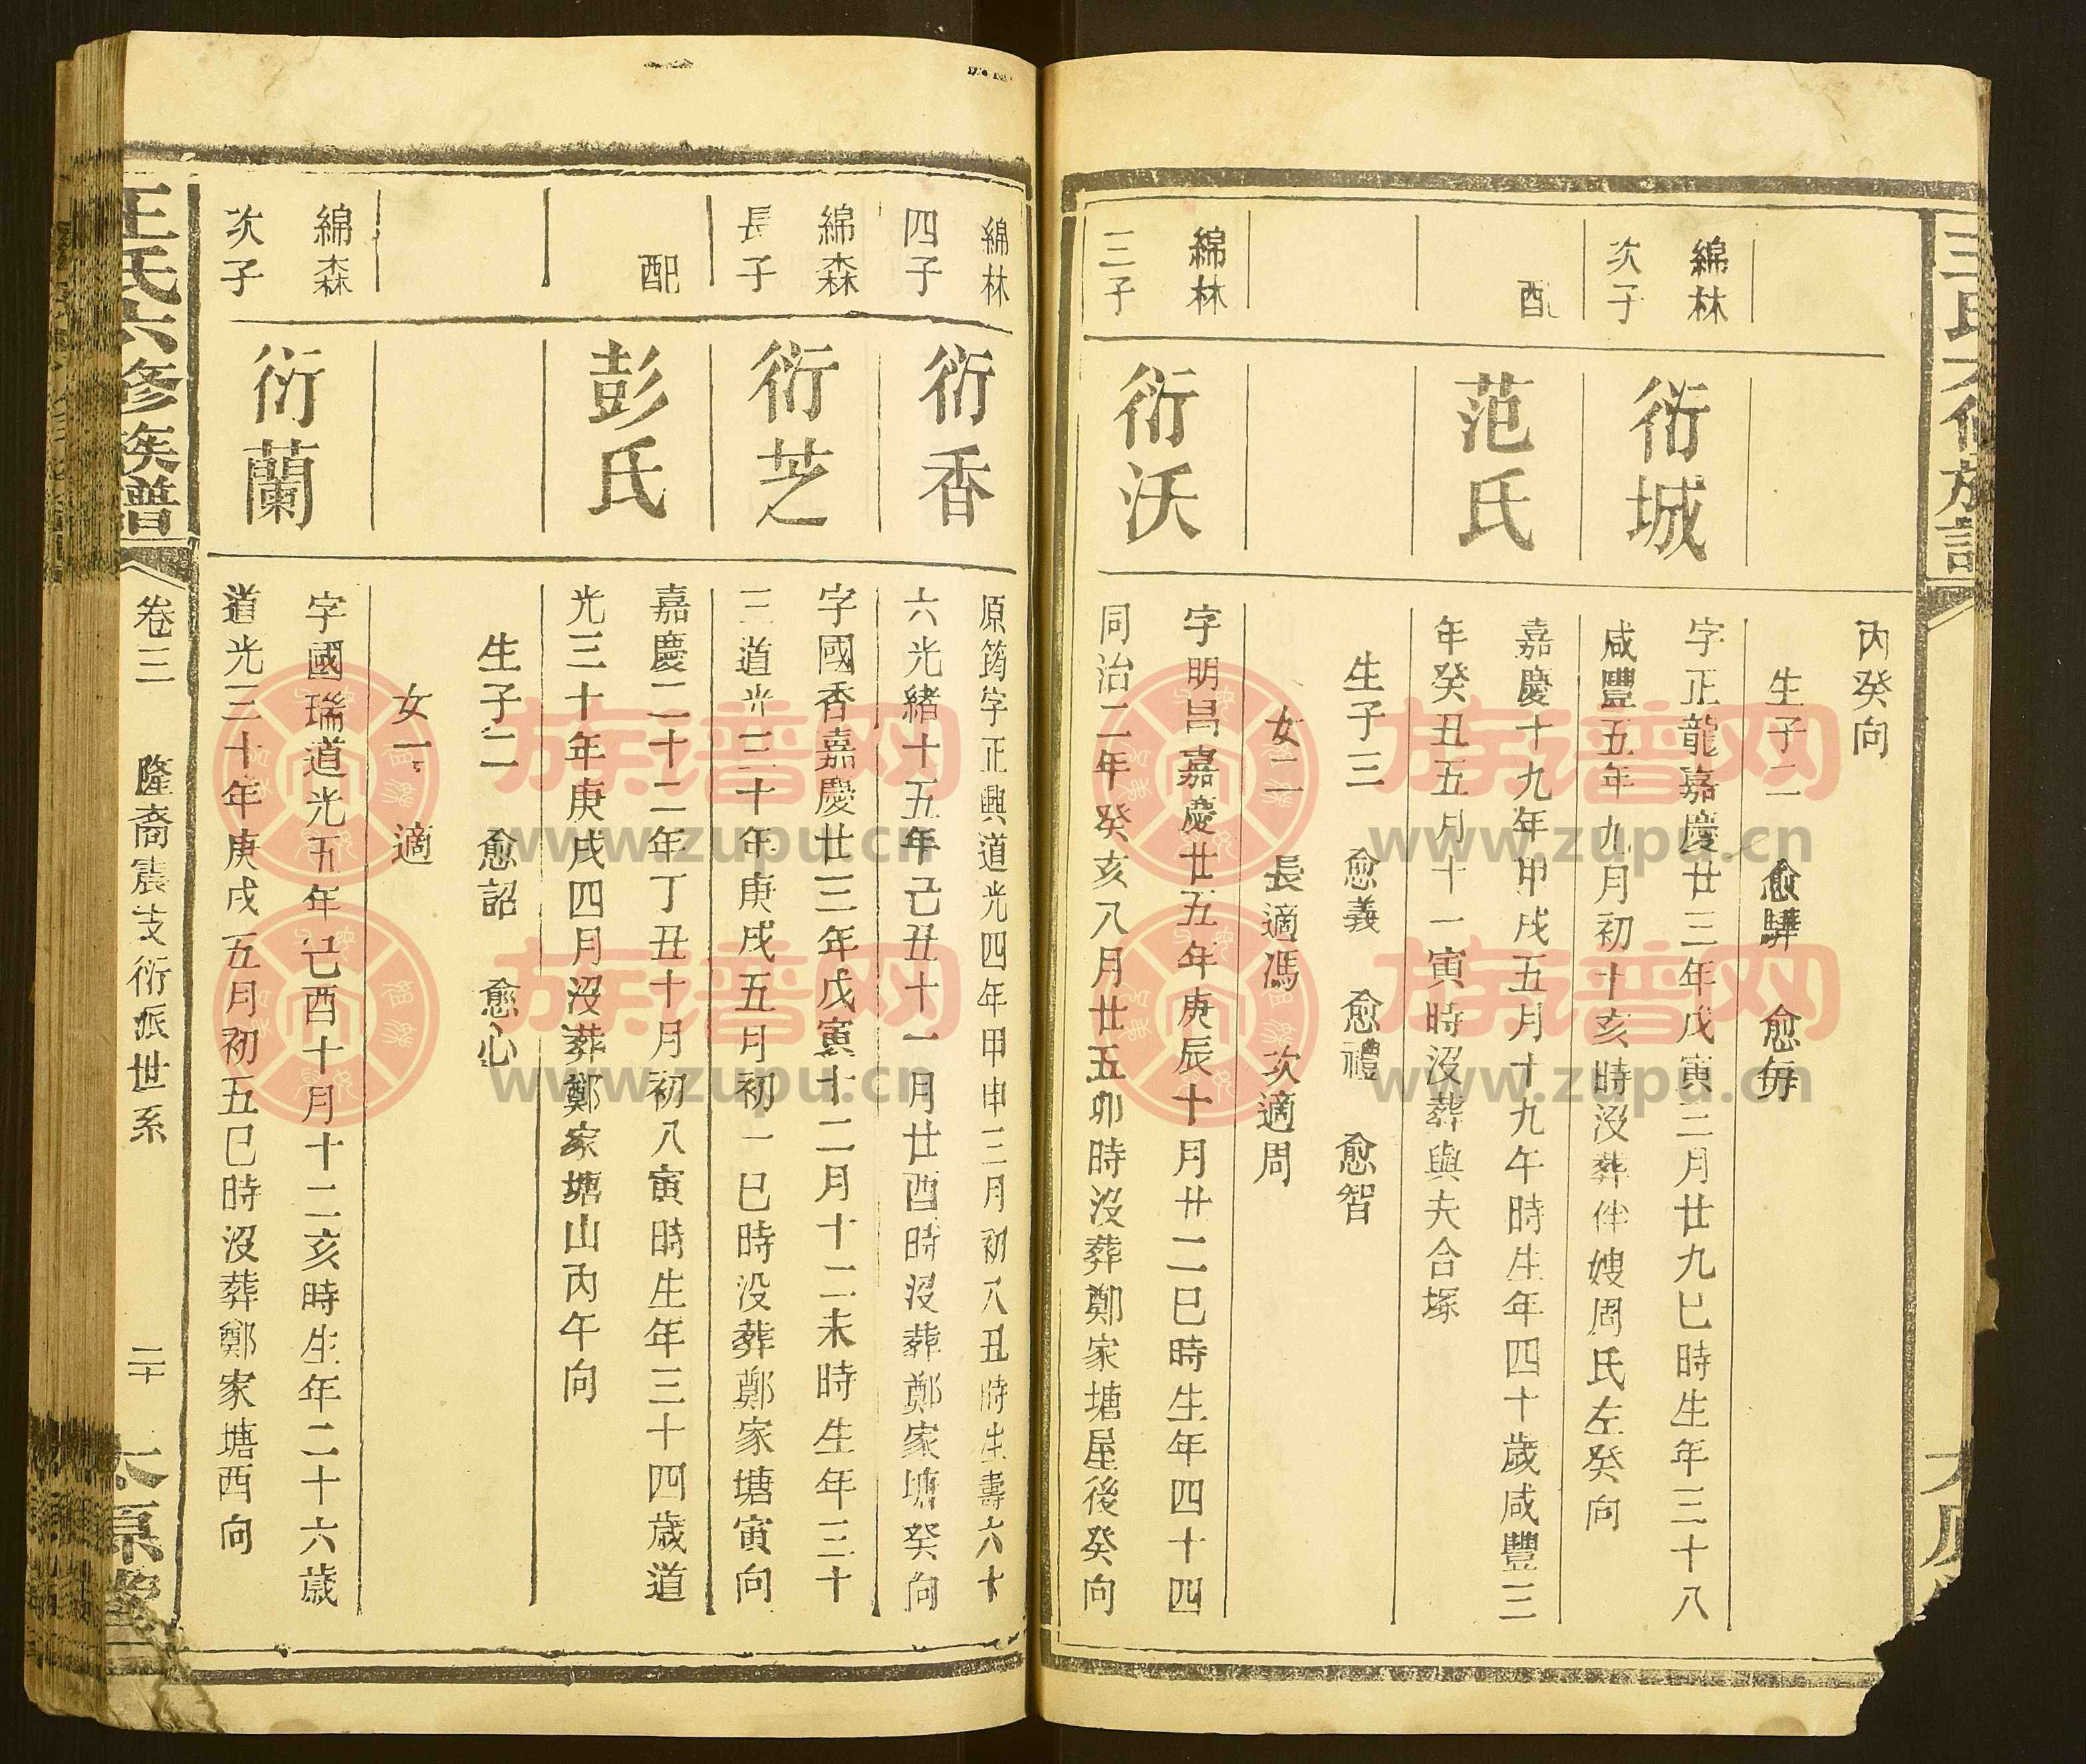 丙癸向
生子二 愈驊 愈毎
綿林
次子
衍城
字正龍嘉慶廿三年戊寅三月廿九巳時生年三十八
咸豐五年九月初十亥時沒葬伴嫂周氏左癸向
配
范氏
嘉慶十九年甲戌五月十九午時生年四十歲咸豐三
年癸丑五月十一寅時沒葬與夫合塚
生子三 愈義 愈禮 愈智
女二 長適馮 次適周
綿林
三子
衍沃
字明昌嘉慶廿五年庚辰十月廿二巳時生年四十四
同治二年癸亥八月廿五卯時沒葬鄭家塘屋後癸向
綿林
四子
衍香
原筠字正興道光四年甲申三月初八丑時生壽六十
六光緒十五年己丑十一月廿酉時沒葬鄭家塘癸向
綿森
長子
衍芝
字國香嘉慶廿三年戊寅十二月十二未時生年三十
三道光三十年庚戌五月初一巳時沒葬鄭家塘寅向
配
彭氏
嘉慶二十二年丁丑十月初八寅時生年三十四歲道
光三十年庚戌四月沒葬鄭家塘山丙午向
生子二 愈詔 愈心
女一 適
綿森
次子
衍蘭
字國瑞道光五年乙酉十月十二亥時生年二十六歲
道光三十年庚戌五月初五巳時沒葬鄭家塘酉向
王氏六修族譜
卷三 隆裔震支衍派世系
二十
太原堂
族谱网
www.zupu.cn
族谱网
www.zupu.cn
族谱网
www.zupu.cn
族谱网
www.zupu.cn